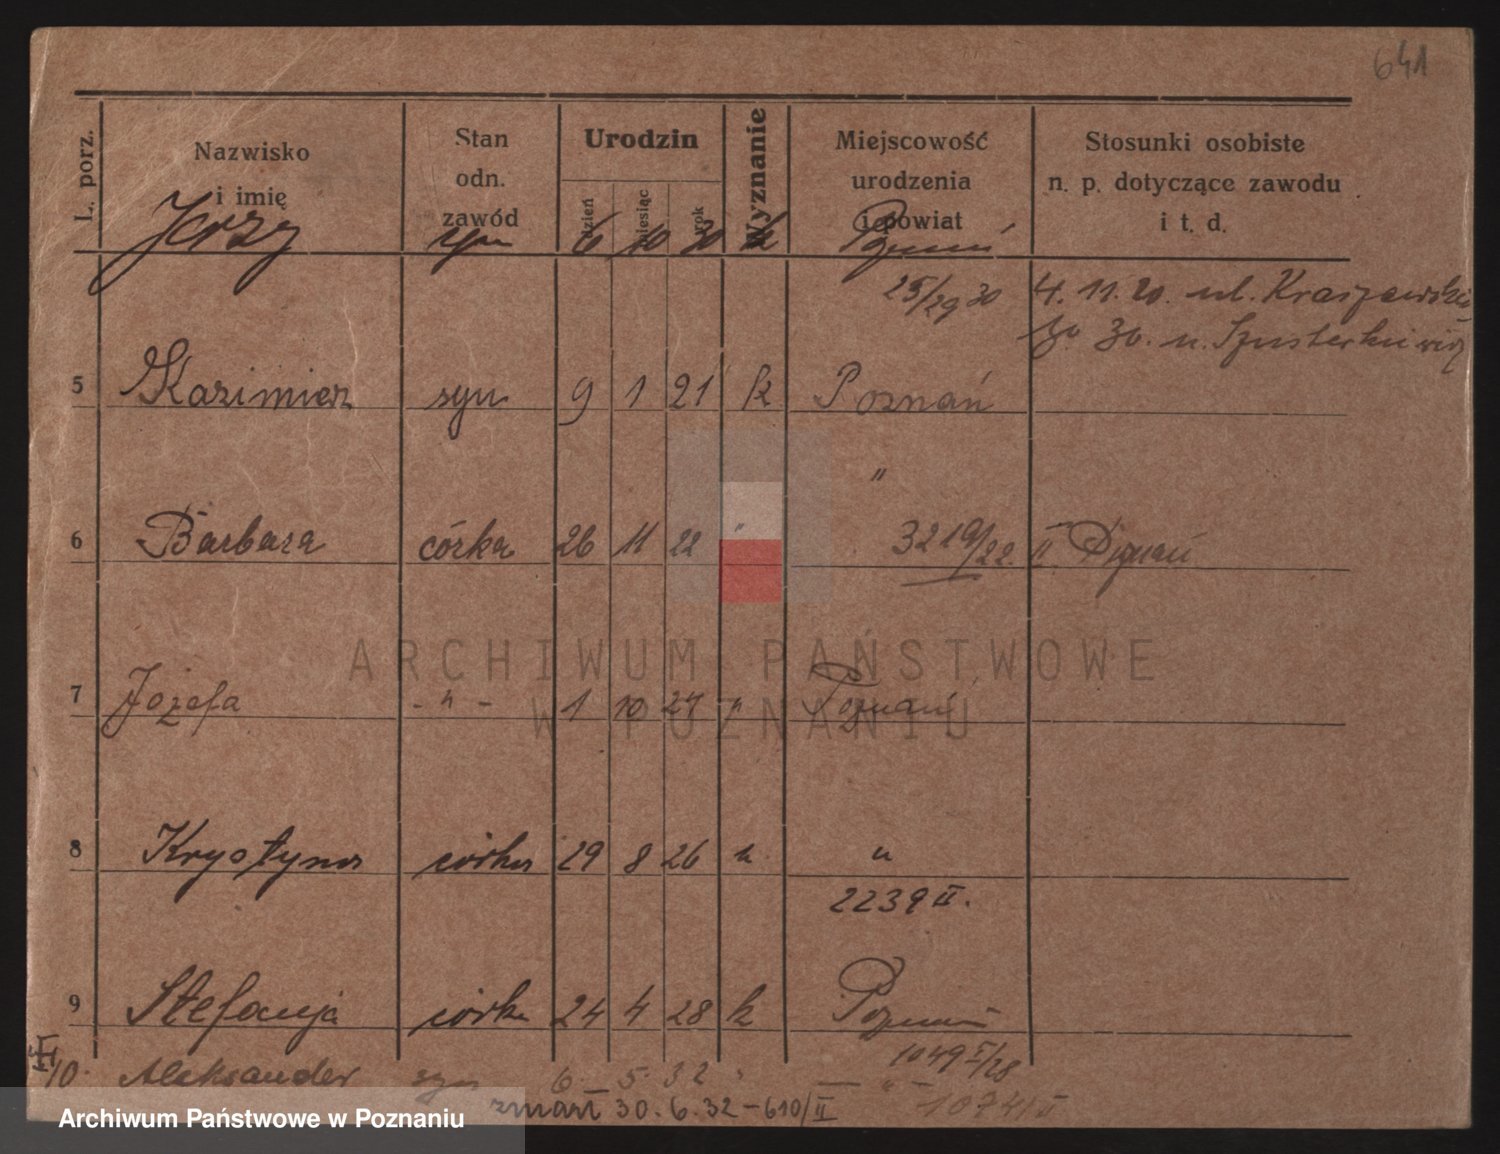 641
L. porz. Nazwisko i imię Stan odn. zawód Urodzin dzień miesiąc rok Wyznanie Miejscowość urodzenia i powiat Stosunki osobiste n. p. dotyczące zawodu i t. d.
Jerzy syn 6 10 30 k Poznań
25/29 30 4. 11. 20. ul. Kraszewskiego
30. u. Szusterkiewicz
5 Kazimierz syn 9 1 21 k Poznań
"
6 Barbara córka 26 11 22 " 3219/22. II Poznań
7 Józefa - " - 1 10 24 " Poznań
8 Krystyna córka 29 8 26 " "
2239 II.
9 Stefanja córka 24 4 28 k Poznań
1049 I/28
10. Aleksander syn 6 5. 32 " — " —
zmarł 30. 6. 32 - 610/II 1074/II
ARCHIWUM PAŃSTWOWE
W POZNANIU
Archiwum Państwowe w Poznaniu